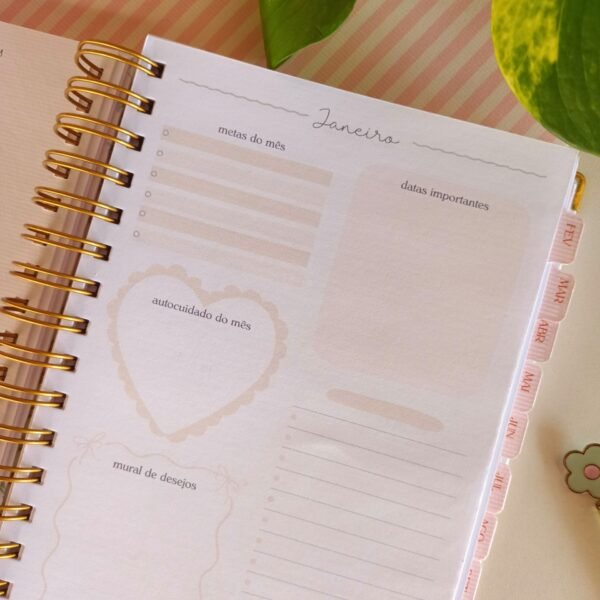 Janeiro
metas do mês
datas importantes
autocuidado do mês
mural de desejos
FEV
MAR
ABR
MAI
JUN
JUL
AGO